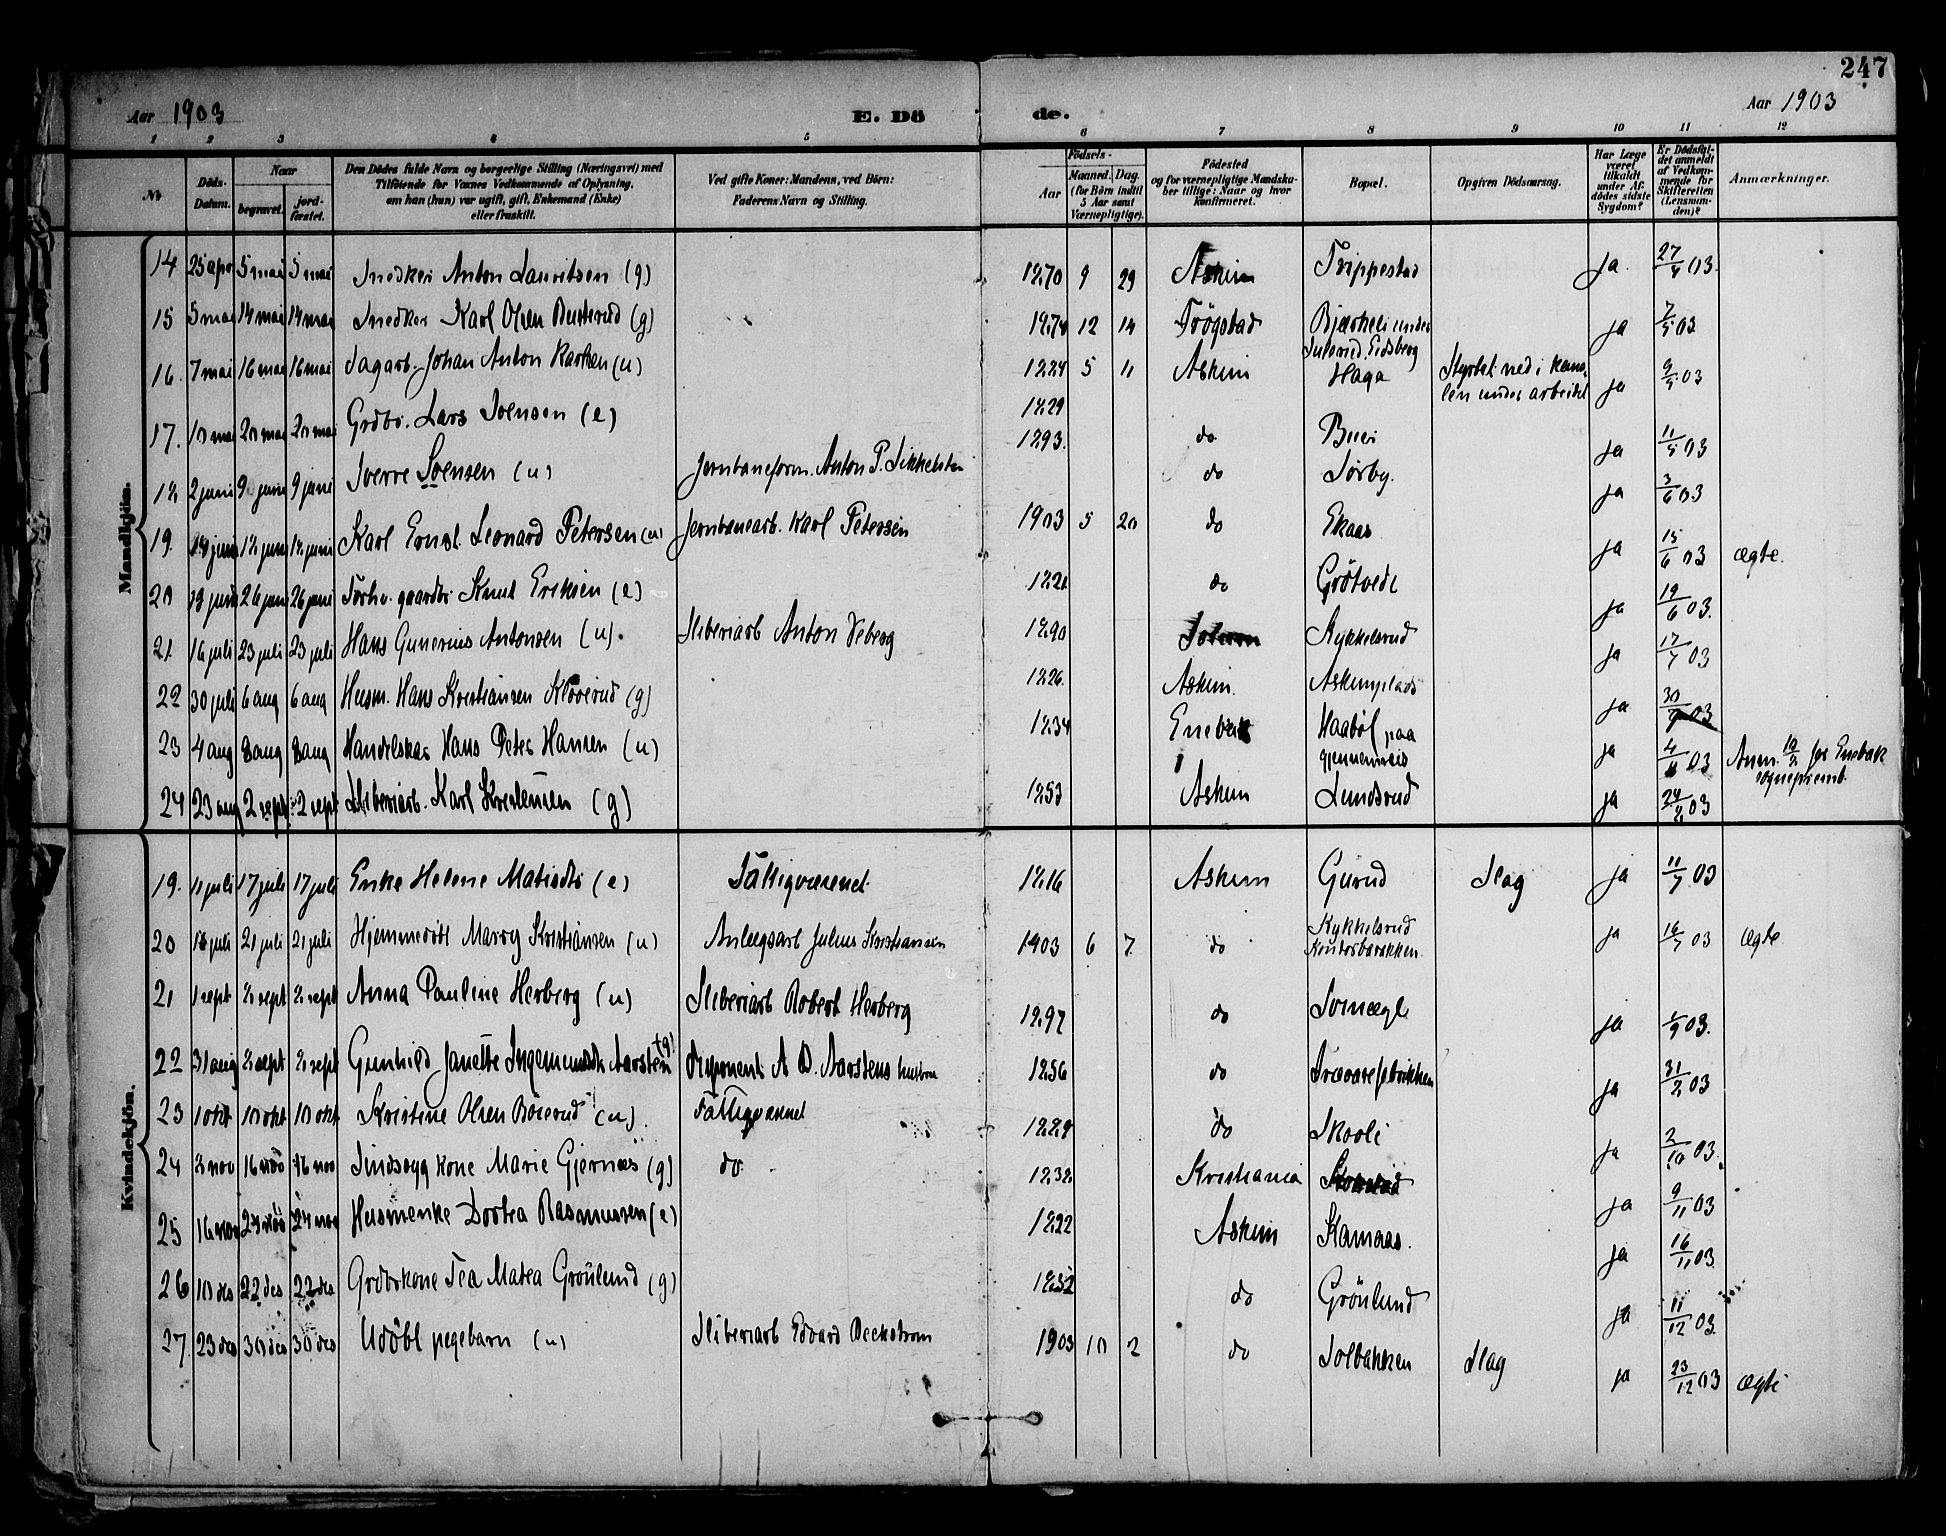 247
Aar 1903 E. Dö de. Aar 1903
1 2 3 4 5 6 7 8 9 10 11 12
No
Döds-Datum.
Naar
begravet.
jordfæstet.
Den Dödes fulde Navn og borgerlige Stilling (Næringsvei) med
Tilföiende for Voxnes Vedkommende af Oplysning,
om han (hun) var ugift, gift, Enkemand (Enke)
eller fraskilt.
Ved gifte Koner: Mandens, ved Börn:
Faderens Navn og Stilling.
Födsels-
Aar
Maaned. Dag
(for Börn indtil
5 Aar samt
Værnepligtige).
Födested
og for værnepligtige Mandskaber tillige: Naar og hvor
Konfirmeret.
Bopæl.
Opgiven Dödsaarsag.
Har Læge
været
tilkaldt
under Afdödes sidste
Sygdom?
Er Dödsfaldet anmeldt
af Vedkommende for
Skifteretten
(Lensmanden)?
Anmærkninger.
Mandkjön.
14 25 apr 5 mai 5 mai Snedker Anton Lauritsen (g) 1870 9 29 Askim Trippestad ja 27/4 03.
15 5 mai 14 mai 14 mai Snedker Karl Olsen (g) 1874 12 14 Trögstad Bjærkeli under Eidsberg ja 7/5 03
16. 7 mai 16 mai 16 mai Dagarb. Johan Anton Karlsen (u) 1884 5 11 Askim Haga Styrtet ned i kanalen under arbeidet ja 9/5 03
17. 10 mai 20 mai 20 mai Grdbr. Lars Svensen (e) 1829 do ja 11/5 03
18 2 juni 9 juni 9 juni Sverre Svensen (u) Jernbaneform. Anton P. 1893. do Sörby. ja 3/6 03
19. 14 juni 18 juni 18 juni Karl Ernst Leonard Petersen (u) Jernbanearb. Karl Petersen 1903 5 20 do Ekaas ja 15/6 03 ægte.
20 19 juni 26 juni 26 juni Forhv. gaardbr Knut Eriksen (e) 182 do Grötvedt ja 19/6 03.
21 16 juli 23 juli 23 juli Hans Gunerius Antonsen (u). Sliberiarb Anton Veberg 1890 Kykkelsrud ja 17/7 03
22 30 juli 6 aug 6 aug Husm. Hans Kristiansen Klöverud (g) 1826. Askim. Askimplads ja 30/7 03
23 4 aug 8 aug 8 aug Handelskar Hans Peter Hansen (u) 1834 Enebak Haaböl paa gjennemreis ja 4/8 03 Anm. 10/8 for Enebak sogneprest.
24 23 aug 2 sept 2 sept Sliberiarb. Karl Kristensen (g) 1853 Askim Lundsrud ja 24/8 03
Kvindekjön.
19. 11 juli 17 juli 17 juli Enke Helene Matisdtr (e) Fattigvæsenet 1816 Askim Gurud Slag ja 11/7 03
20 16 juli 21 juli 21 juli Hjemmedöbt Marry Kristiansen (u) Anlægsarb Julius Kristiansen 1903 6 7 do Kykkelsrud ja 16/7 03 Ægte
21 1 sept 8 sept 8 sept Anna Pauline Herberg (u) Sliberiarb Robert Herberg 1897 do ja 1/9 03.
22 31 aug 8 sept 8 sept Gunhild Janette Ingemundsdtr Aarsten (g) Disponent A D. Aarstens hustru 1856 do Trævarefabrikken ja 31/8 03
23 1 okt 10 okt 10 okt Kristine Olsen (u). Fattigvæsenet 182 do Skooli ja 2/10 03.
24 8 nov 16 nov 16 nov Sindssyg kone Marie Gjernæs (g) do. 1838 Kristiania ja 9/11 03
25 16 nov 24 nov 24 nov Husmenke Dortea Rasmussen (e) 1822 Askim Kamaas. ja 16/11 03
26 10 des 22 des 22 des Grdbrkone Tea Matea Grönlund (g) 1852 do Grönlund ja 11/12 03
27. 23 des 30 des 30 des Udöbt pigebarn (u) Sliberiarb Edvard Beckstrøm 1903 10 2 do Solbakken Slag ja 23/12 03 ægte